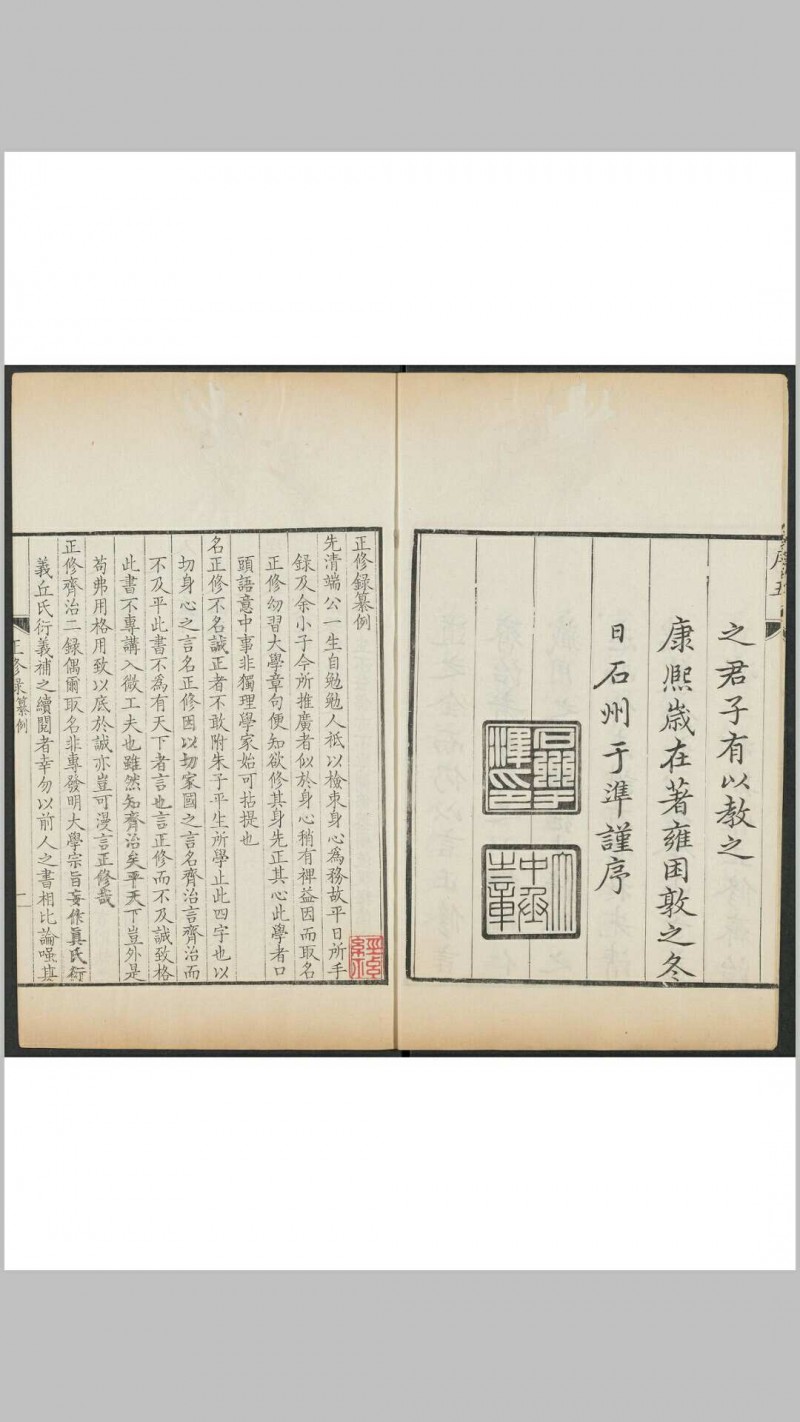 之君子有以教之
康熙歲在著雍困敦之冬
日石州于準謹序
正修録纂例
先清端公一生自勉勉人祗以檢束身心為務故平日所手
録及余小子今所推廣者似於身心稍有裨益因而取名
正修幼習大學章句便知欲修其身先正其心此學者口
頭語意中事非獨理學家始可拈提也
名正修不名誠正者不敢附朱子平生所學止此四字也以
切身心之言名正修因以切家國之言名齊治言齊治而
不及平此書不為有天下者言也言正修而不及誠致格
此書不專講入微工夫也雖然知齊治矣平天下豈外是
苟弗用格用致以底於誠亦豈可漫言正修哉
正修齊治二録偶爾取名非專發明大學宗旨妄作真氏衍
義丘氏衍義補之續閱者幸勿以前人之書相比論嗤其
正修录纂例
一